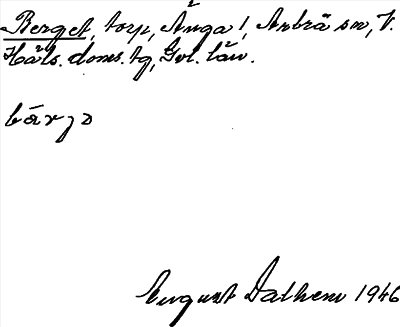 Berget, torp, Ånga 1, Arbrå sn, V.
Häls. doms. tg, Gvl. län.
bárjə
August Dalhem 1946